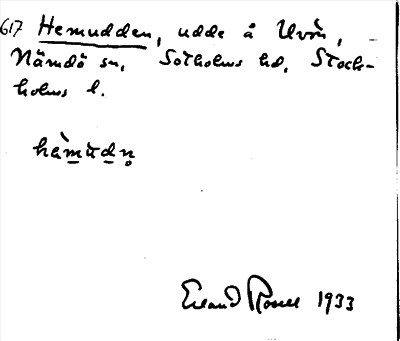 617 Hemudden, udde å Uvön,
Nämdö sn, Sotholms hd, Stock-
holms l.
hèmùdn̥
Erland Rosell 1933